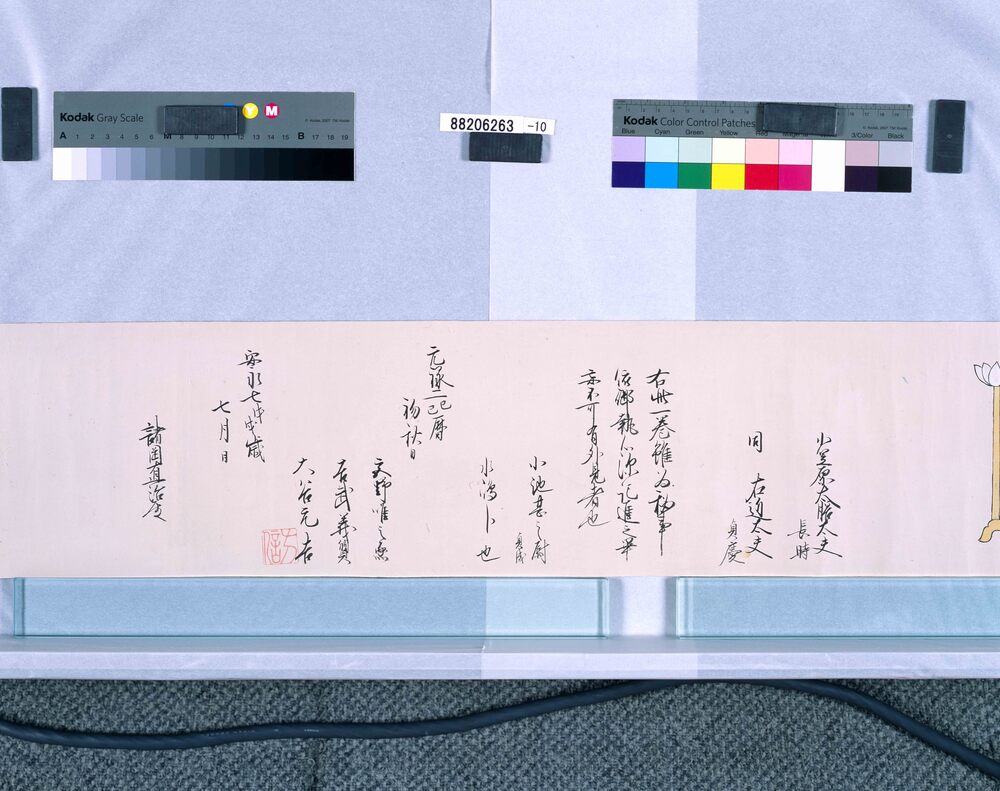 Kodak Gray Scale
© Kodak, 2007 TM: Kodak
A 1 2 3 4 5 6 M 8 9 10 11 12 13 14 15 B 17 18 19
Y M
88206263 -10
Kodak Color Control Patches
© Kodak, 2007 TM: Kodak
Blue Cyan Green Yellow Red Magenta 3/Color Black
小笠原大膳大夫
長時
同 右近大夫
貞慶
右此一巻雖為秘事
依御執心深記進之畢
亦不可有外見者也
小池甚之尉
貞成
水嶋卜也
元禄二己巳暦
初秋日
天野唯之
大谷元吉
安永七戊戌歳
七月日
諸岡直治殿